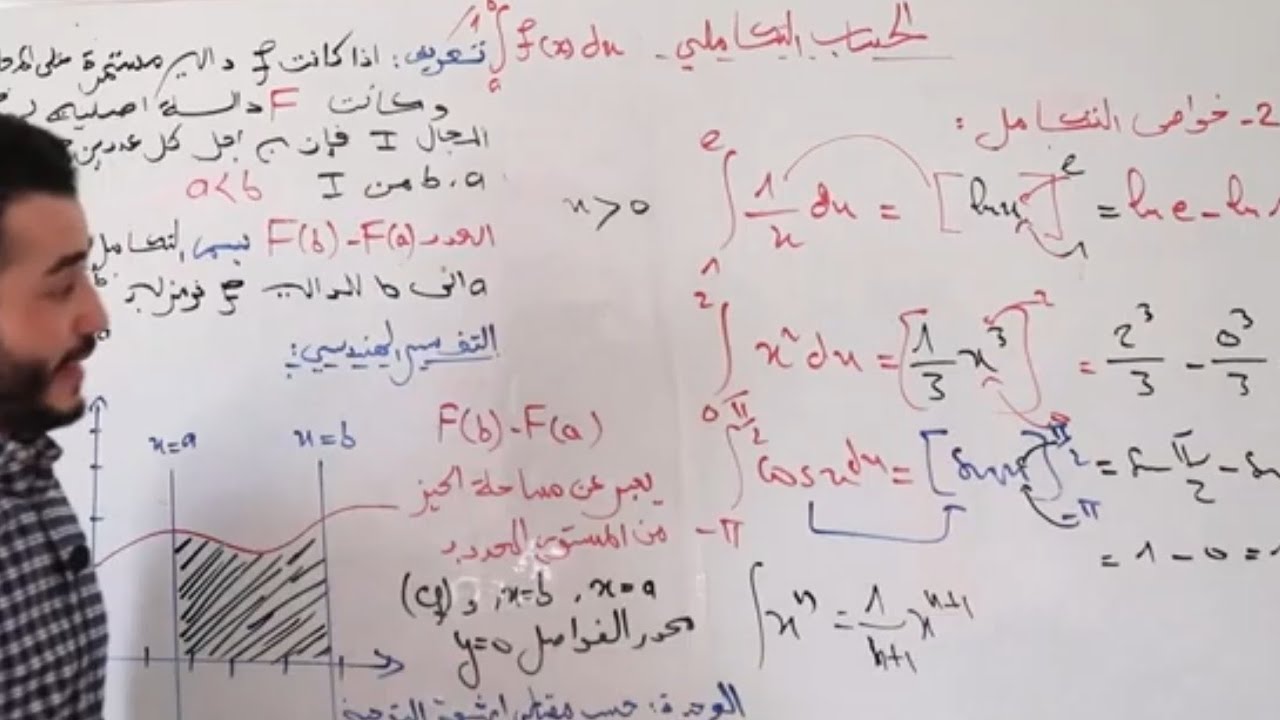 الحساب التكاملي - ∫ₐᵇ f(x) dx
1/ تعريف: اذا كانت f دالة مستمرة على
وكانت F دالة اصلية
المجال I فإن من اجل كل عددين
a, b من I a<b
العدد F(b)-F(a) يسمى التكامل
a الى b للدالة f نرمز لـ
التفسير الهندسي:
x=a x=b
F(b)-F(a)
يعبر عن مساحة الحيز
من المستوي المحدد بـ
(Cf) و x=b , x=a
محور الفواصل y=0
الوحدة: حسب
2- خواص التكامل:
x>0 ∫₁ᵉ 1/x dx = [ln x]₁ᵉ = ln e - ln 1
∫₀² x² dx = [1/3 x³]₀² = 2³/3 - 0³/3
∫_{-π}^{π/2} cos x dx = [sin x]_{-π}^{π/2} = sin π/2 - sin
= 1 - 0 = 1
∫ xⁿ = 1/(n+1) xⁿ⁺¹